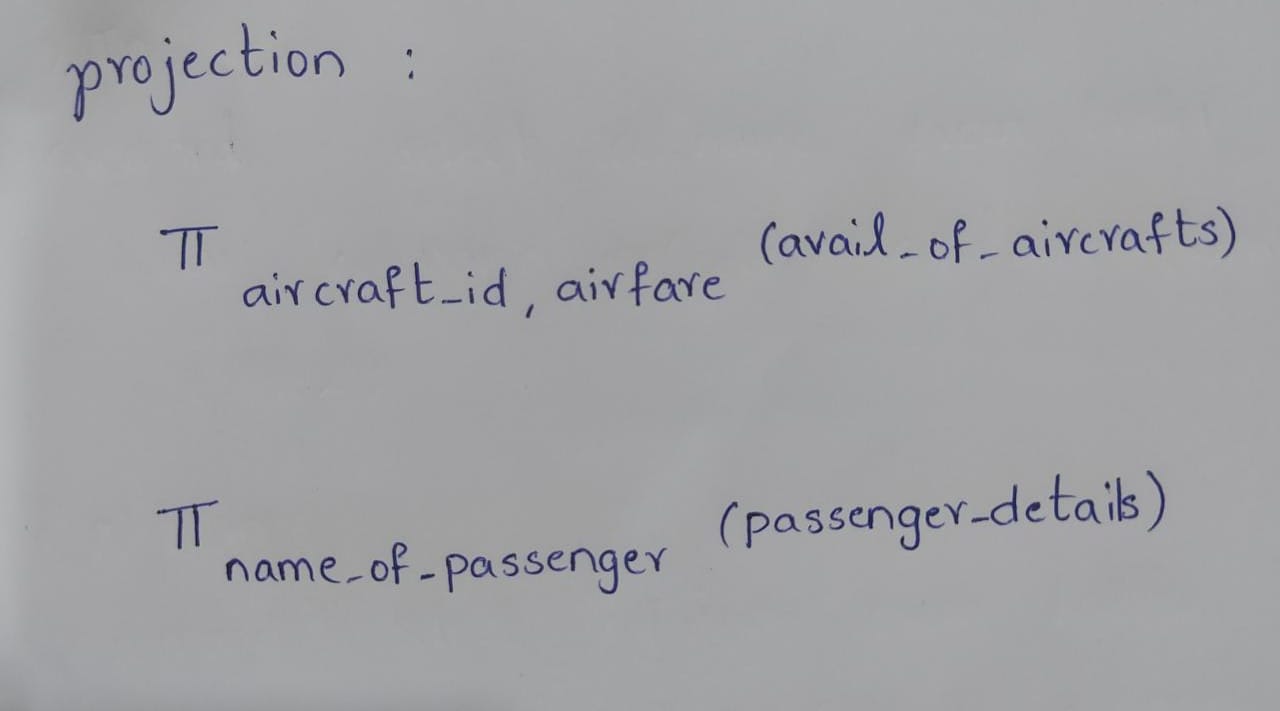 projection :
π aircraft_id, airfare (avail_of_aircrafts)
π name_of_passenger (passenger_details)